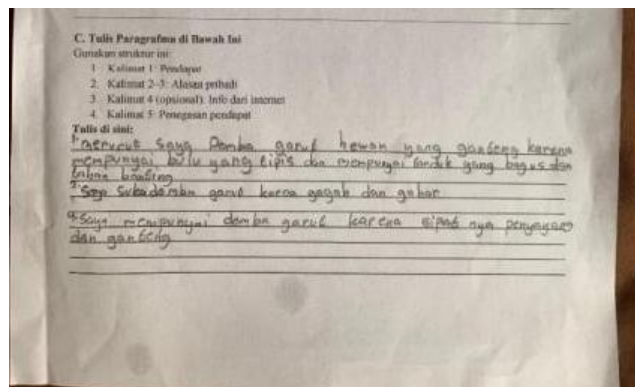 C. Tulis Paragrafmu di Bawah Ini
Gunakan struktur ini:
1. Kalimat 1: Pendapat
2. Kalimat 2–3: Alasan pribadi
3. Kalimat 4 (opsional): Info dari internet
4. Kalimat 5: Penegasan pendapat
Tulis di sini:
1. menurut saya Domba garut hewan yang ganteng karena
mempunyai bulu yang tipis dan mempunyai tanduk yang bagus dan
banteng
2. Saya Suka domba garut karena gagah dan
Saya mempunyai domba garut karena sipat nya penyayang
dan ganteng